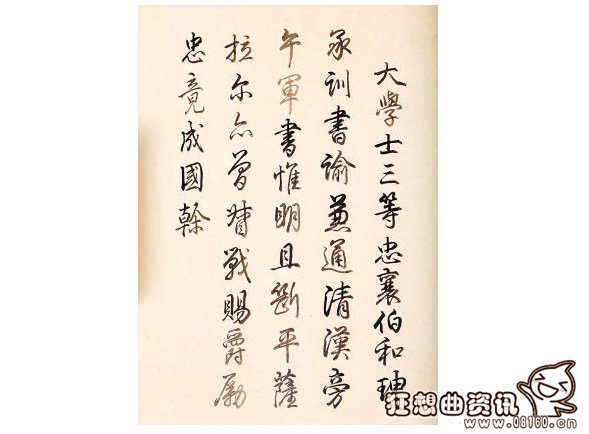 大學士三等忠襄伯和珅
承訓書諭兼通清漢旁
午軍書惟明且斷平薩
拉尔亦曾督戰賜爵勵
忠竟成國幹
狂想曲资讯
www.08160.cn